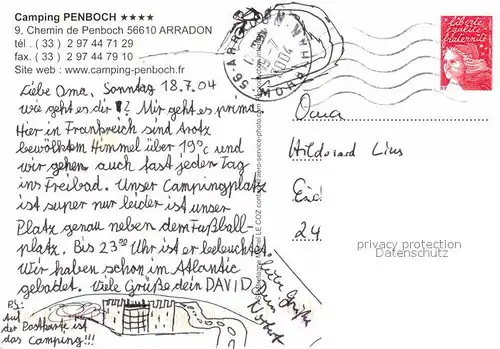 Camping PENBOCH ★★★★
9, Chemin de Penboch 56610 ARRADON
tél . ( 33 ) 2 97 44 71 29
fax. ( 33 ) 2 97 44 79 10
Site web : www.camping-penboch.fr
Liebe Oma, Sonntag 18.7.04
wie geht es dir ? Mir geht es prima.
Hier in Frankreich sind trotz
bewölktem Himmel über 19°c und
wir gehen auch fast jeden Tag
ins Freibad. Unser Campingplatz
ist super nur leider ist unser
Platz genau neben dem Fußball-
platz. Bis 23⁰⁰ Uhr ist er beleuchtet.
Wir haben schon im Atlantic
gebadet. Viele Grüße dein DAVID
PS:
Auf
der Postkarte ist
das Camping!!!
Liebe Grüße
Dein
Norbert
LE COZ
56-ARRADON
MORBIHAN
2004
liberté
égalité
fraternité
Oma
Hildegard
24
privacy protection
Datenschutz